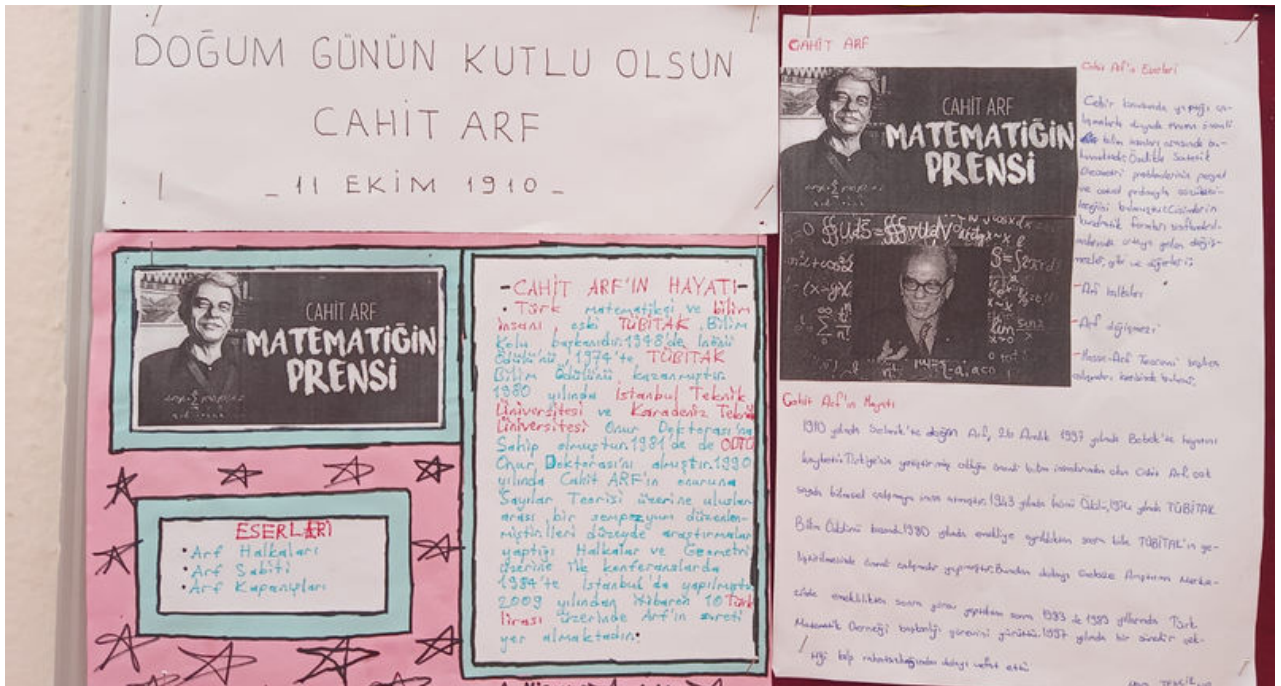 DOĞUM GÜNÜN KUTLU OLSUN
CAHİT ARF
- 11 EKİM 1910 -
CAHİT ARF
MATEMATİĞİN
PRENSİ
ESERLARİ
• Arf Halkaları
• Arf Sabiti
• Arf Kapanışları
-CAHİT ARF'IN HAYATI-
• Türk matematikçi ve bilim
insanı eski TÜBİTAK Bilim
Kolu başkanıdır.1948'de İnönü
Ödülü'nü, 1974'te TÜBİTAK
Bilim Ödülünü kazanmıştır.
1980 yılında İstanbul Teknik
Üniversitesi ve Karadeniz Teknik
Üniversitesi Onur Doktorası'na
Sahip olmuştur.1981'de de ODTÜ
Onur Doktorası'nı almıştır.1990
yılında Cahit ARF'ın onuruna
Sayılar Teorisi üzerine uluslar
arası bir sempozyum düzenlen-
miştir.İleri düzeyde araştırmalar
yaptığı Halkalar ve Geometri
üzerine ilk konferanslarda
1984'te İstanbul'da yapılmıştı
2009 yılından itibaren 10 Türk
lirası üzerinde Arf'ın sureti
yer almaktadır.
CAHİT ARF
CAHİT ARF
MATEMATİĞİN
PRENSİ
Cahit Arf'ın Eserleri
Cebir konusunda yaptığı ça-
lışmalarla dünyada önemli
bilim insanları arasında bu-
lunmaktadır.
Geometri problemlerinin pergel
ve cetvel yardımıyla
kuadratik formları
-Arf halkaları
-Arf değişmezi
-Hasse-Arf Teoremi
Cahit Arf'ın Hayatı
1910 yılında Selanik'te doğan Arf, 26 Aralık 1997 yılında Bebek'te hayatını
kaybetti.Türkiye'nin yetiştirmiş olduğu önemli bilim insanlarından olan Cahit Arf, çok
sayıda bilimsel çalışmaya imza atmıştır.1943 yılında İnönü Ödülü,1974 yılında TÜBİTAK
Bilim Ödülünü kazandı.1980 yılında emekliye ayrıldıktan sonra bile TÜBİTAK'ın ge-
liştirilmesinde önemli çalışmalar yapmıştır.Bundan dolayı Araştırma Merke-
zinde emeklilikten sonra görev yaptıktan sonra 1989 yıllarında Türk
Matematik Derneği başkanlığı görevini yürüttü.1997 yılında bir süredir çek-
tiği kalp rahatsızlığından dolayı vefat etti.